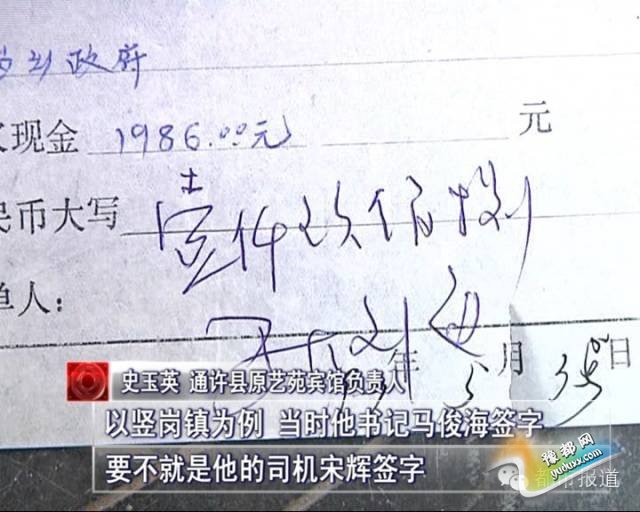 乡政府
现金 1986.00元 元
民币大写 壹仟玖佰捌
单人：
年 5月 日
史玉英 通许县原艺苑宾馆负责人
以竖岗镇为例 当时他书记马俊海签字
要不就是他的司机宋辉签字
豫都网
yuduxx.com
都市报道